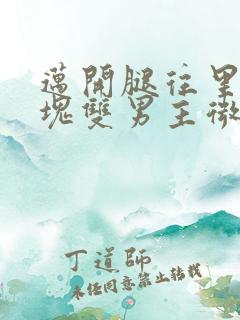 邁開腿往里
塊雙男主微
丁道師
未经同意禁止转载